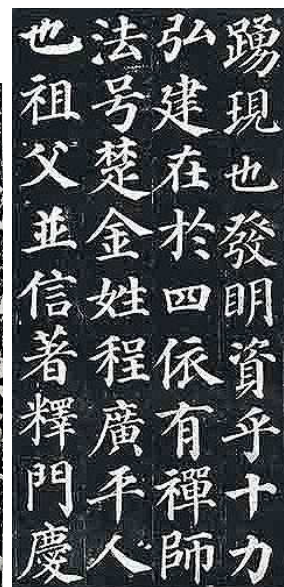 踴現也發明資乎十力
弘建在於四依有禪師
法号楚金姓程廣平人
也祖父並信著釋門慶